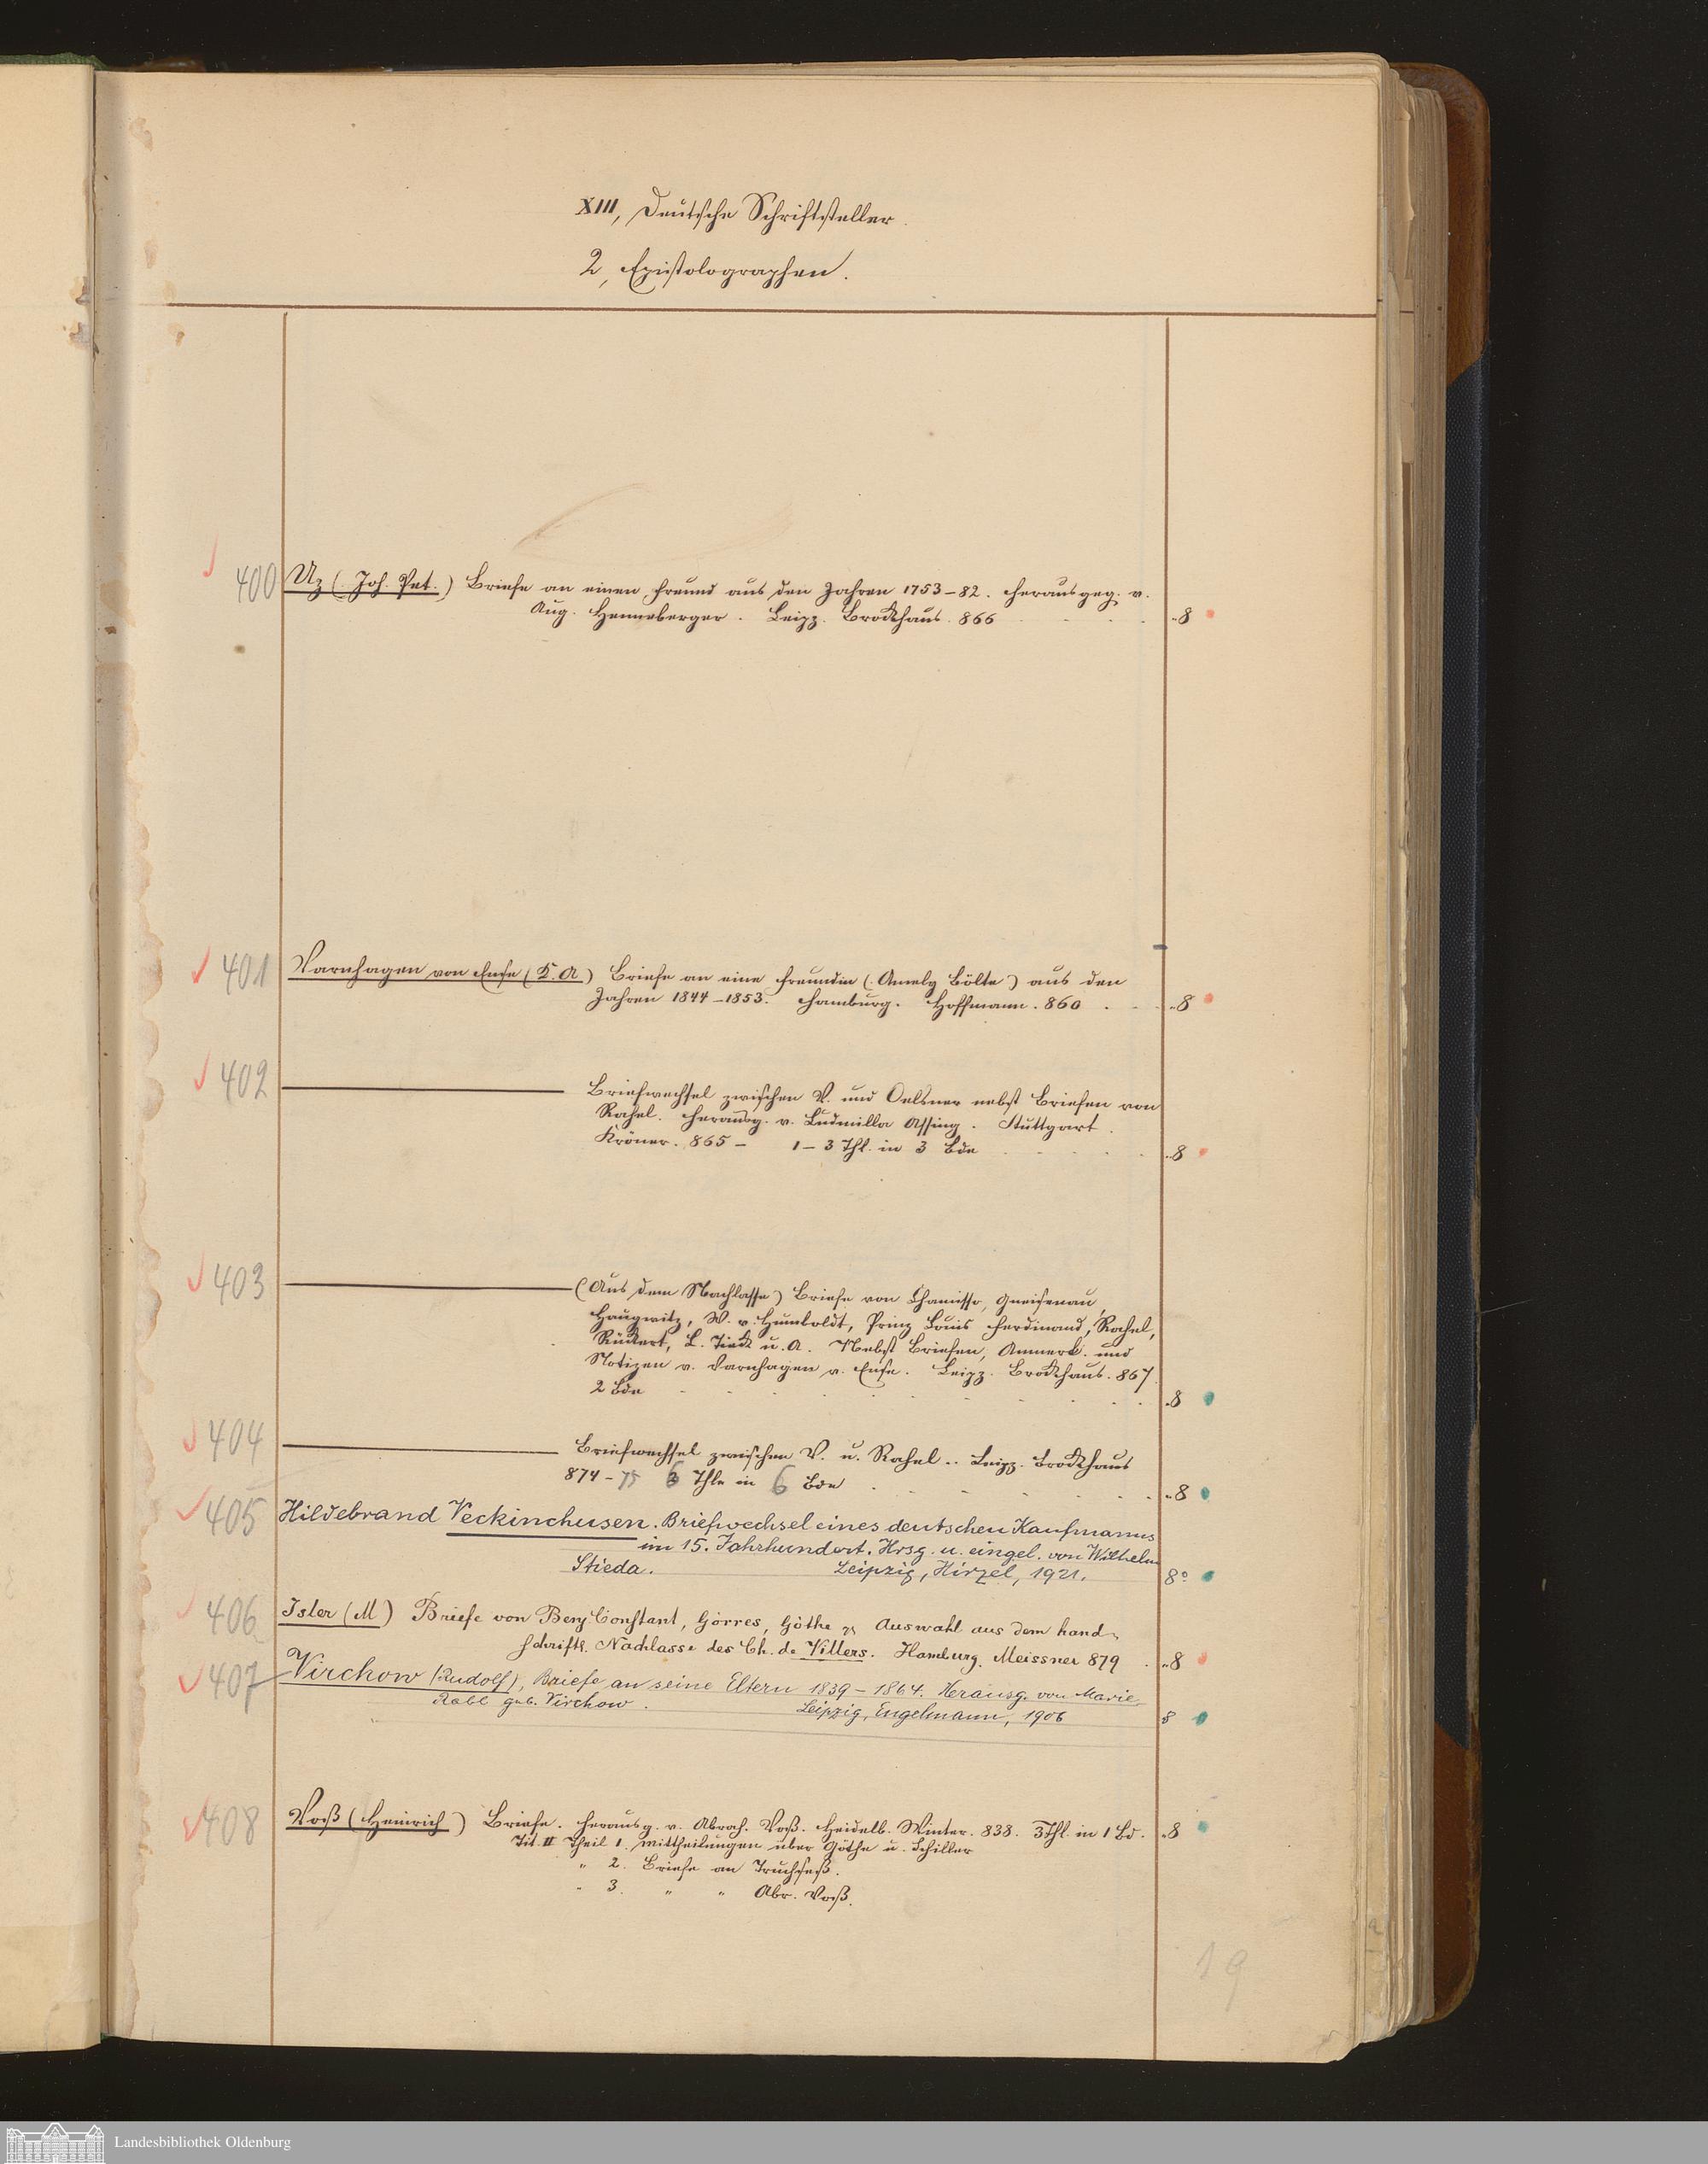 XIII, Deutsche Schriftsteller.
2, Epistolographen.
400 Uz (Joh. Pet.) Briefe an einen Freund aus den Jahren 1753–82. Herausgeg. v.
Aug. Henneberger. Leipz. Brockhaus. 866 . . . . 8
401 Varnhagen von Ense (K. A.) Briefe an eine Freundin (Amely Bölte) aus den
Jahren 1844–1853. Hamburg. Hoffmann. 860 . . . 8
402 ——— Briefwechsel zwischen V. und Oelsner nebst Briefen von
Rahel. Herausg. v. Ludmilla Assing. Stuttgart.
Kröner. 865 – 1–3 Thl. in 3 Bde . . . . 8
403 ——— (Aus dem Nachlasse) Briefe von Chamisso, Gneisenau,
Haugwitz, W. v. Humboldt, Prinz Louis Ferdinand, Rahel,
Rückert, L. Tieck u. A. Nebst Briefen, Anmerk. und
Notizen v. Varnhagen v. Ense. Leipz. Brockhaus. 867.
2 Bde . . . . . . . . 8
404 ——— Briefwechsel zwischen V. u. Rahel .. Leipz. Brockhaus
874–75 6 Thle in 6 Bde . . . . . . 8
405 Hildebrand Veckinchusen. Briefwechsel eines deutschen Kaufmanns
im 15. Jahrhundert. Hrsg. u. eingel. von Wilhelm
Stieda. Leipzig, Hirzel, 1921. 8°
406 Isler (M) Briefe von Benj. Constant, Görres, Göthe Auswahl aus dem hand-
schriftl. Nachlasse des Ch. de Villers. Hamburg. Meissner 879 . 8
407 Virchow (Rudolf), Briefe an seine Eltern 1839–1864. Herausg. von Marie
Rabl geb. Virchow. Leipzig, Engelmann, 1906 8
408 Voß (Heinrich) Briefe. Herausg. v. Abrah. Voß. Heidelb. Winter. 838. 3 Thl. in 1 Bd. 8
Tit. II Theil 1. Mittheilungen über Göthe u. Schiller
" 2. Briefe an Truchseß.
" 3. " " Abr. Voß.
19
Landesbibliothek Oldenburg